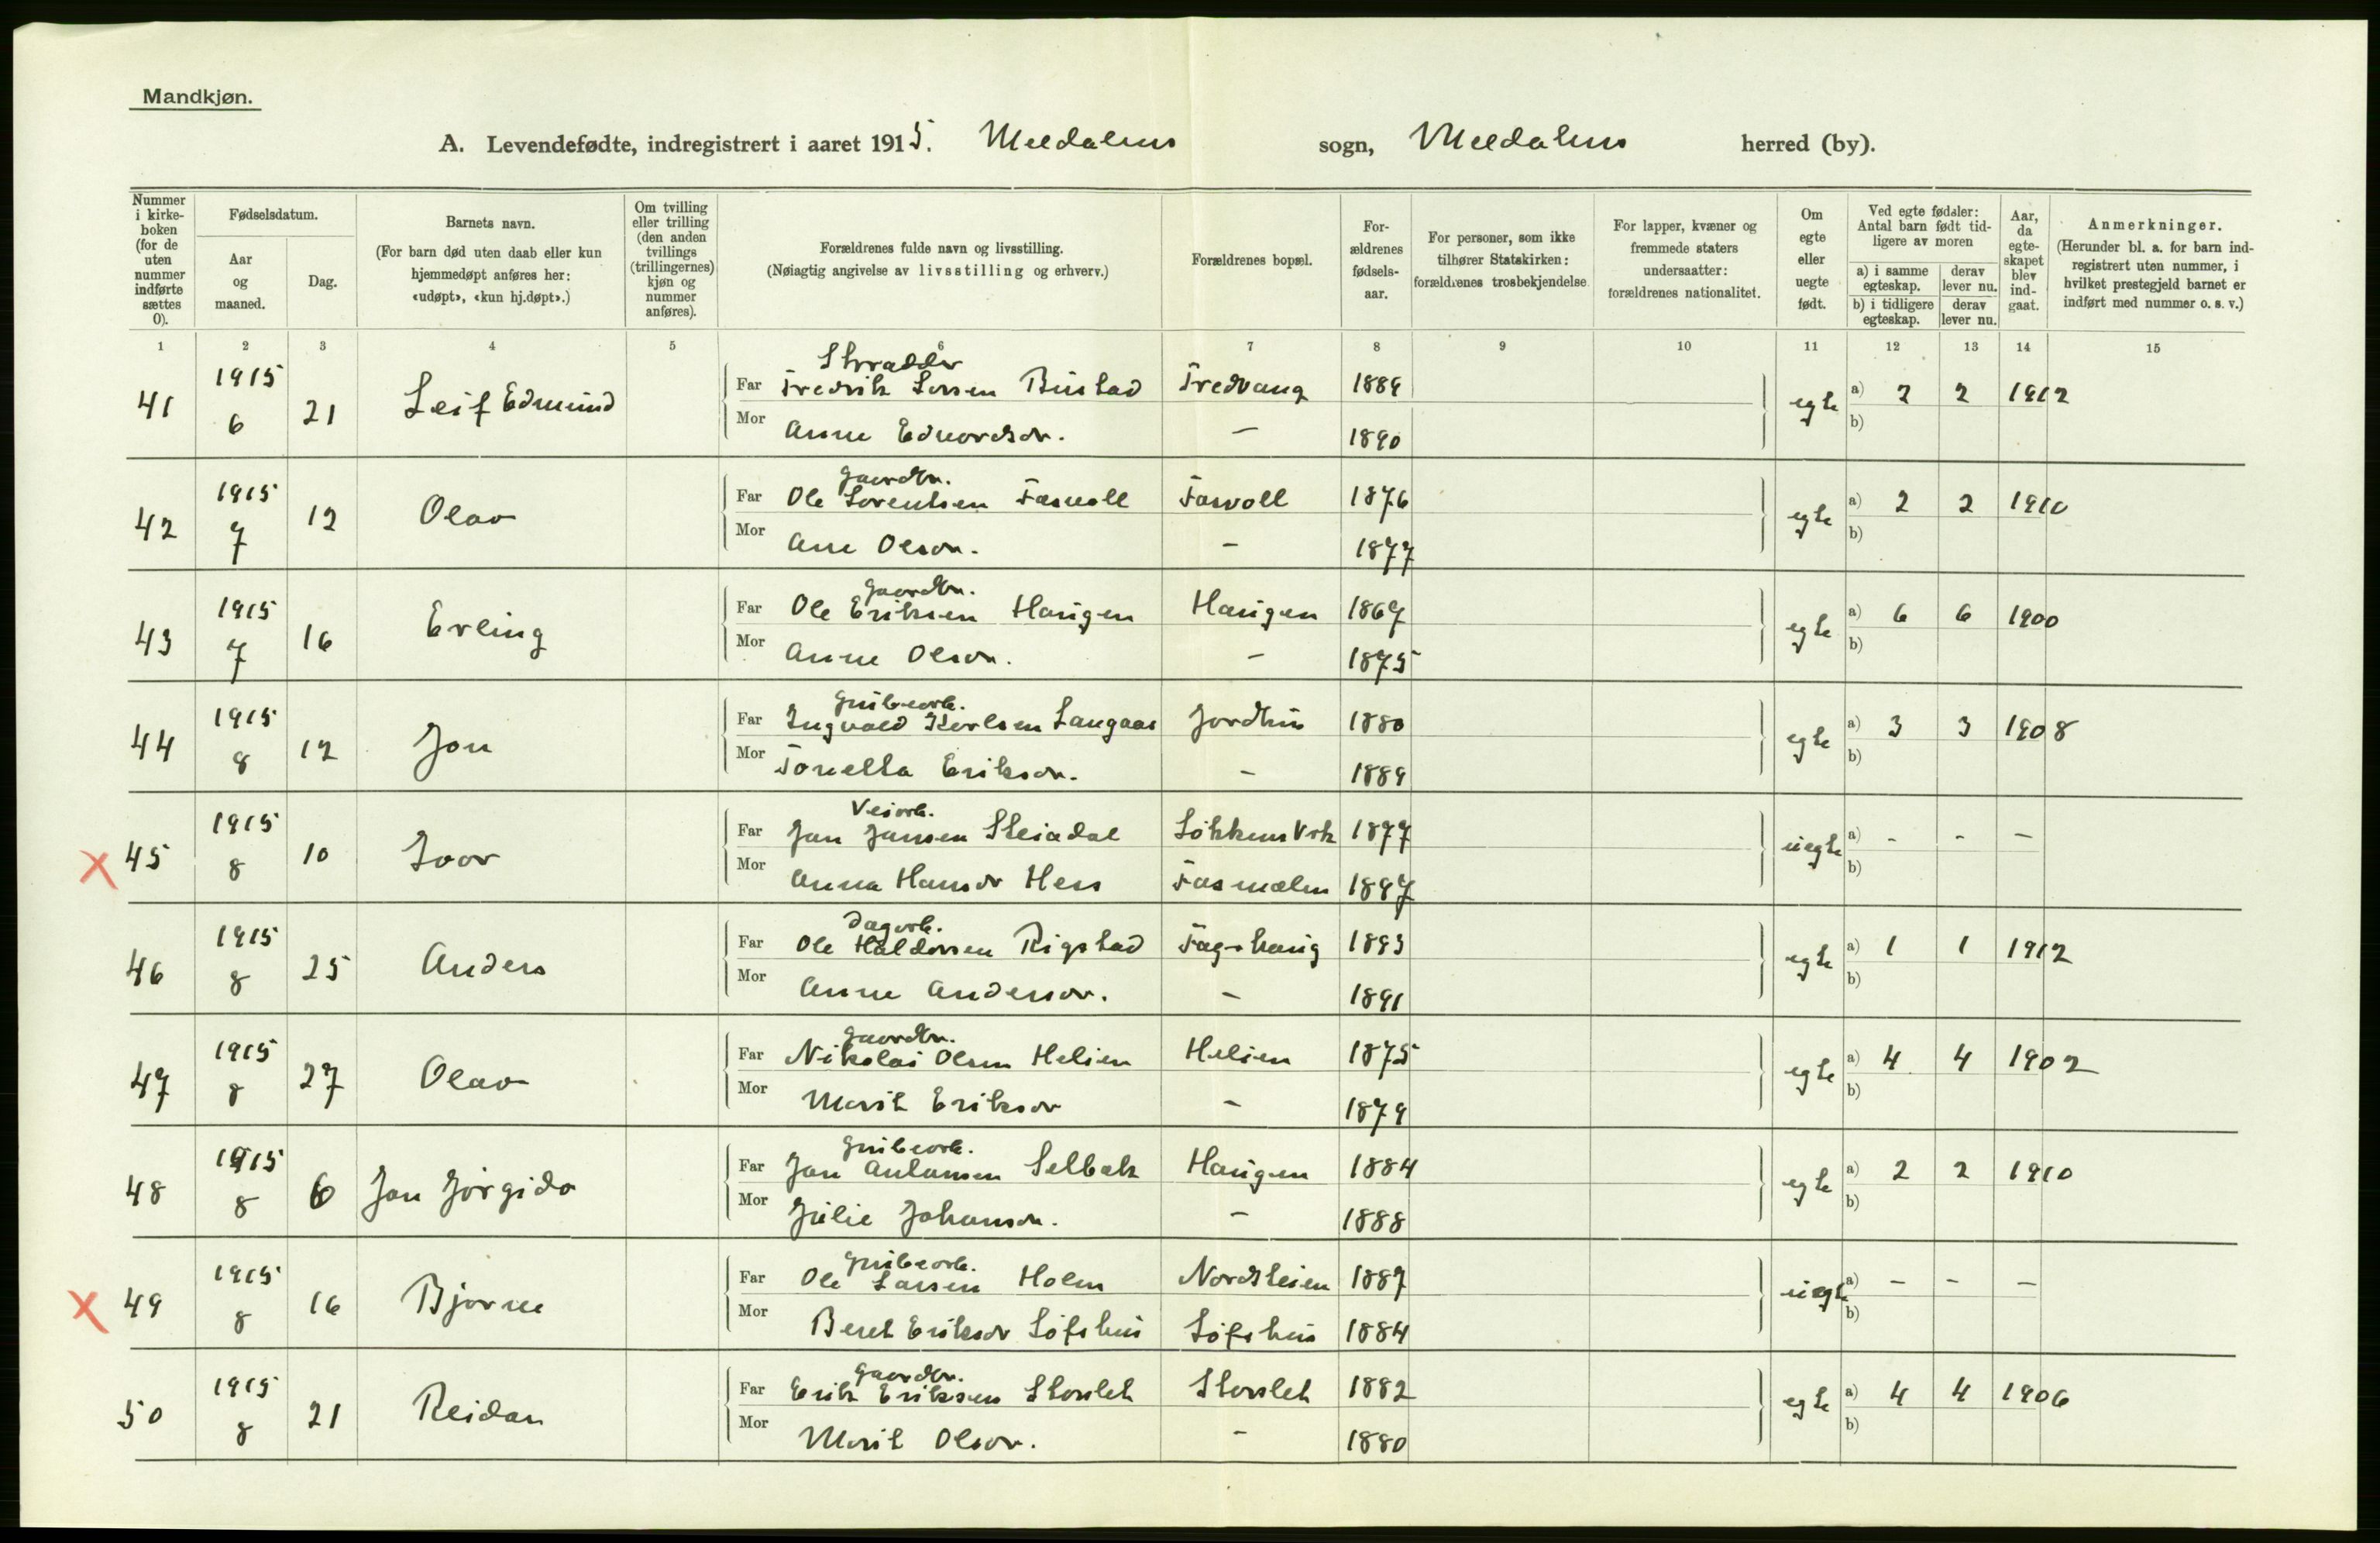 Mandkjøn.
A. Levendefødte, indregistrert i aaret 1915. Meldalens sogn, Meldalens herred (by).
Nummer i kirkeboken (for de uten nummer indførte sættes 0).
Fødselsdatum.
Aar og maaned.
Dag.
Barnets navn.
(For barn død uten daab eller kun hjemmedøpt anføres her: «udøpt», «kun hj.døpt».)
Om tvilling eller trilling (den anden tvillings (trillingernes) kjøn og nummer anføres).
Forældrenes fulde navn og livsstilling.
(Nøiagtig angivelse av livsstilling og erhverv.)
Forældrenes bopæl.
Forældrenes fødselsaar.
For personer, som ikke tilhører Statskirken: forældrenes trosbekjendelse
For lapper, kvæner og fremmede staters undersaatter: forældrenes nationalitet.
Om egte eller uegte født.
Ved egte fødsler: Antal barn født tidligere av moren
a) i samme egteskap. derav lever nu.
b) i tidligere egteskap. derav lever nu.
Aar, da egteskapet blev indgaat.
Anmerkninger.
(Herunder bl. a. for barn indregistrert uten nummer, i hvilket prestegjeld barnet er indført med nummer o. s. v.)
1 2 3 4 5 6 7 8 9 10 11 12 13 14 15
Skrædder
41 1915 6 21 Leif Edmund Far Fredrik Larsen Bustad Fredvang 1889 egte a) 2 2 1912
Mor Anne Edvardsdr. – 1890 b)
Gaardbr.
42 1915 7 12 Olav Far Ole Lorentsen Fasvoll Fasvoll 1876 egte a) 2 2 1910
Mor Ane Olsdr. – 1877 b)
Gaardbr.
43 1915 7 16 Erling Far Ole Eriksen Haugen Haugen 1867 egte a) 6 6 1900
Mor Anne Olsdr. – 1875 b)
Grubearb.
44 1915 8 12 Jon Far Ingvald Karlsen Langaas Jordhus 1880 egte a) 3 3 1908
Mor Tonetta Eriksdr. – 1889 b)
Veiarb.
X 45 1915 8 10 Ivar Far Jon Jonsen Steindal Løkkens Vrk 1877 uegte a) - - -
Mor Anna Hansdr Hess 1897 b)
Dagarb.
46 1915 8 25 Anders Far Ole Haldorsen Rigstad Fagerhaug 1893 egte a) 1 1 1912
Mor Anne Andersdr. – 1891 b)
Gaardbr.
47 1915 8 27 Olav Far Nikolai Olsen Helien Helien 1875 egte a) 4 4 1902
Mor Marit Eriksdr – 1879 b)
Grubearb.
48 1915 8 6 Jon Far Jon Antonsen Selbæk Haugen 1884 egte a) 2 2 1910
Mor Julie Johansdr. – 1888 b)
Grubearb.
X 49 1915 8 16 Bjarne Far Ole Larsen Holm Nordsteien 1887 uegte a) - - -
Mor Beret Eriksdr Løfshus Løfshus 1884 b)
Gaardbr.
50 1915 8 21 Reidar Far Erik Eriksen Storslet Storslet 1882 egte a) 4 4 1906
Mor Marit Olsdr. – 1880 b)